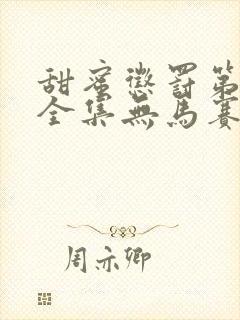 甜蜜懲罰第
全集無馬賽
周亦卿